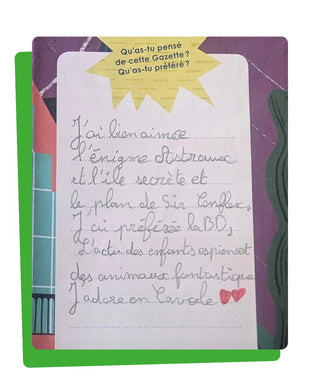 Qu'as-tu pensé
de cette Gazette ?
Qu'as-tu préféré ?
J'ai bien aimée
l'énigme Astraux
et l'île secrète et
le plan de Sir Conflex,
J'ai préférée la BD,
L'actu des enfants espions et
des animaux fantastique
J'adore en Cavale